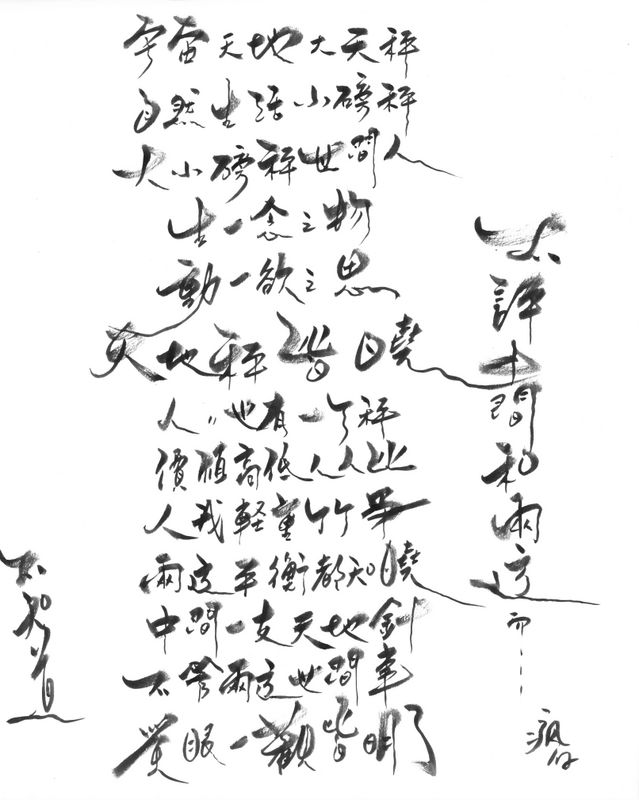 宇宙天地大天秤
自然生活小磅秤
大小磅秤世間人
生一念之物
動一欲之思
天地秤皆自曉
人〃也有一个秤
價值高低人人比
人我軽重
兩边平衡都知曉
中間一支天地針
不管兩边世間事
覺眼一觀皆明了
不評中間和兩边
不知道